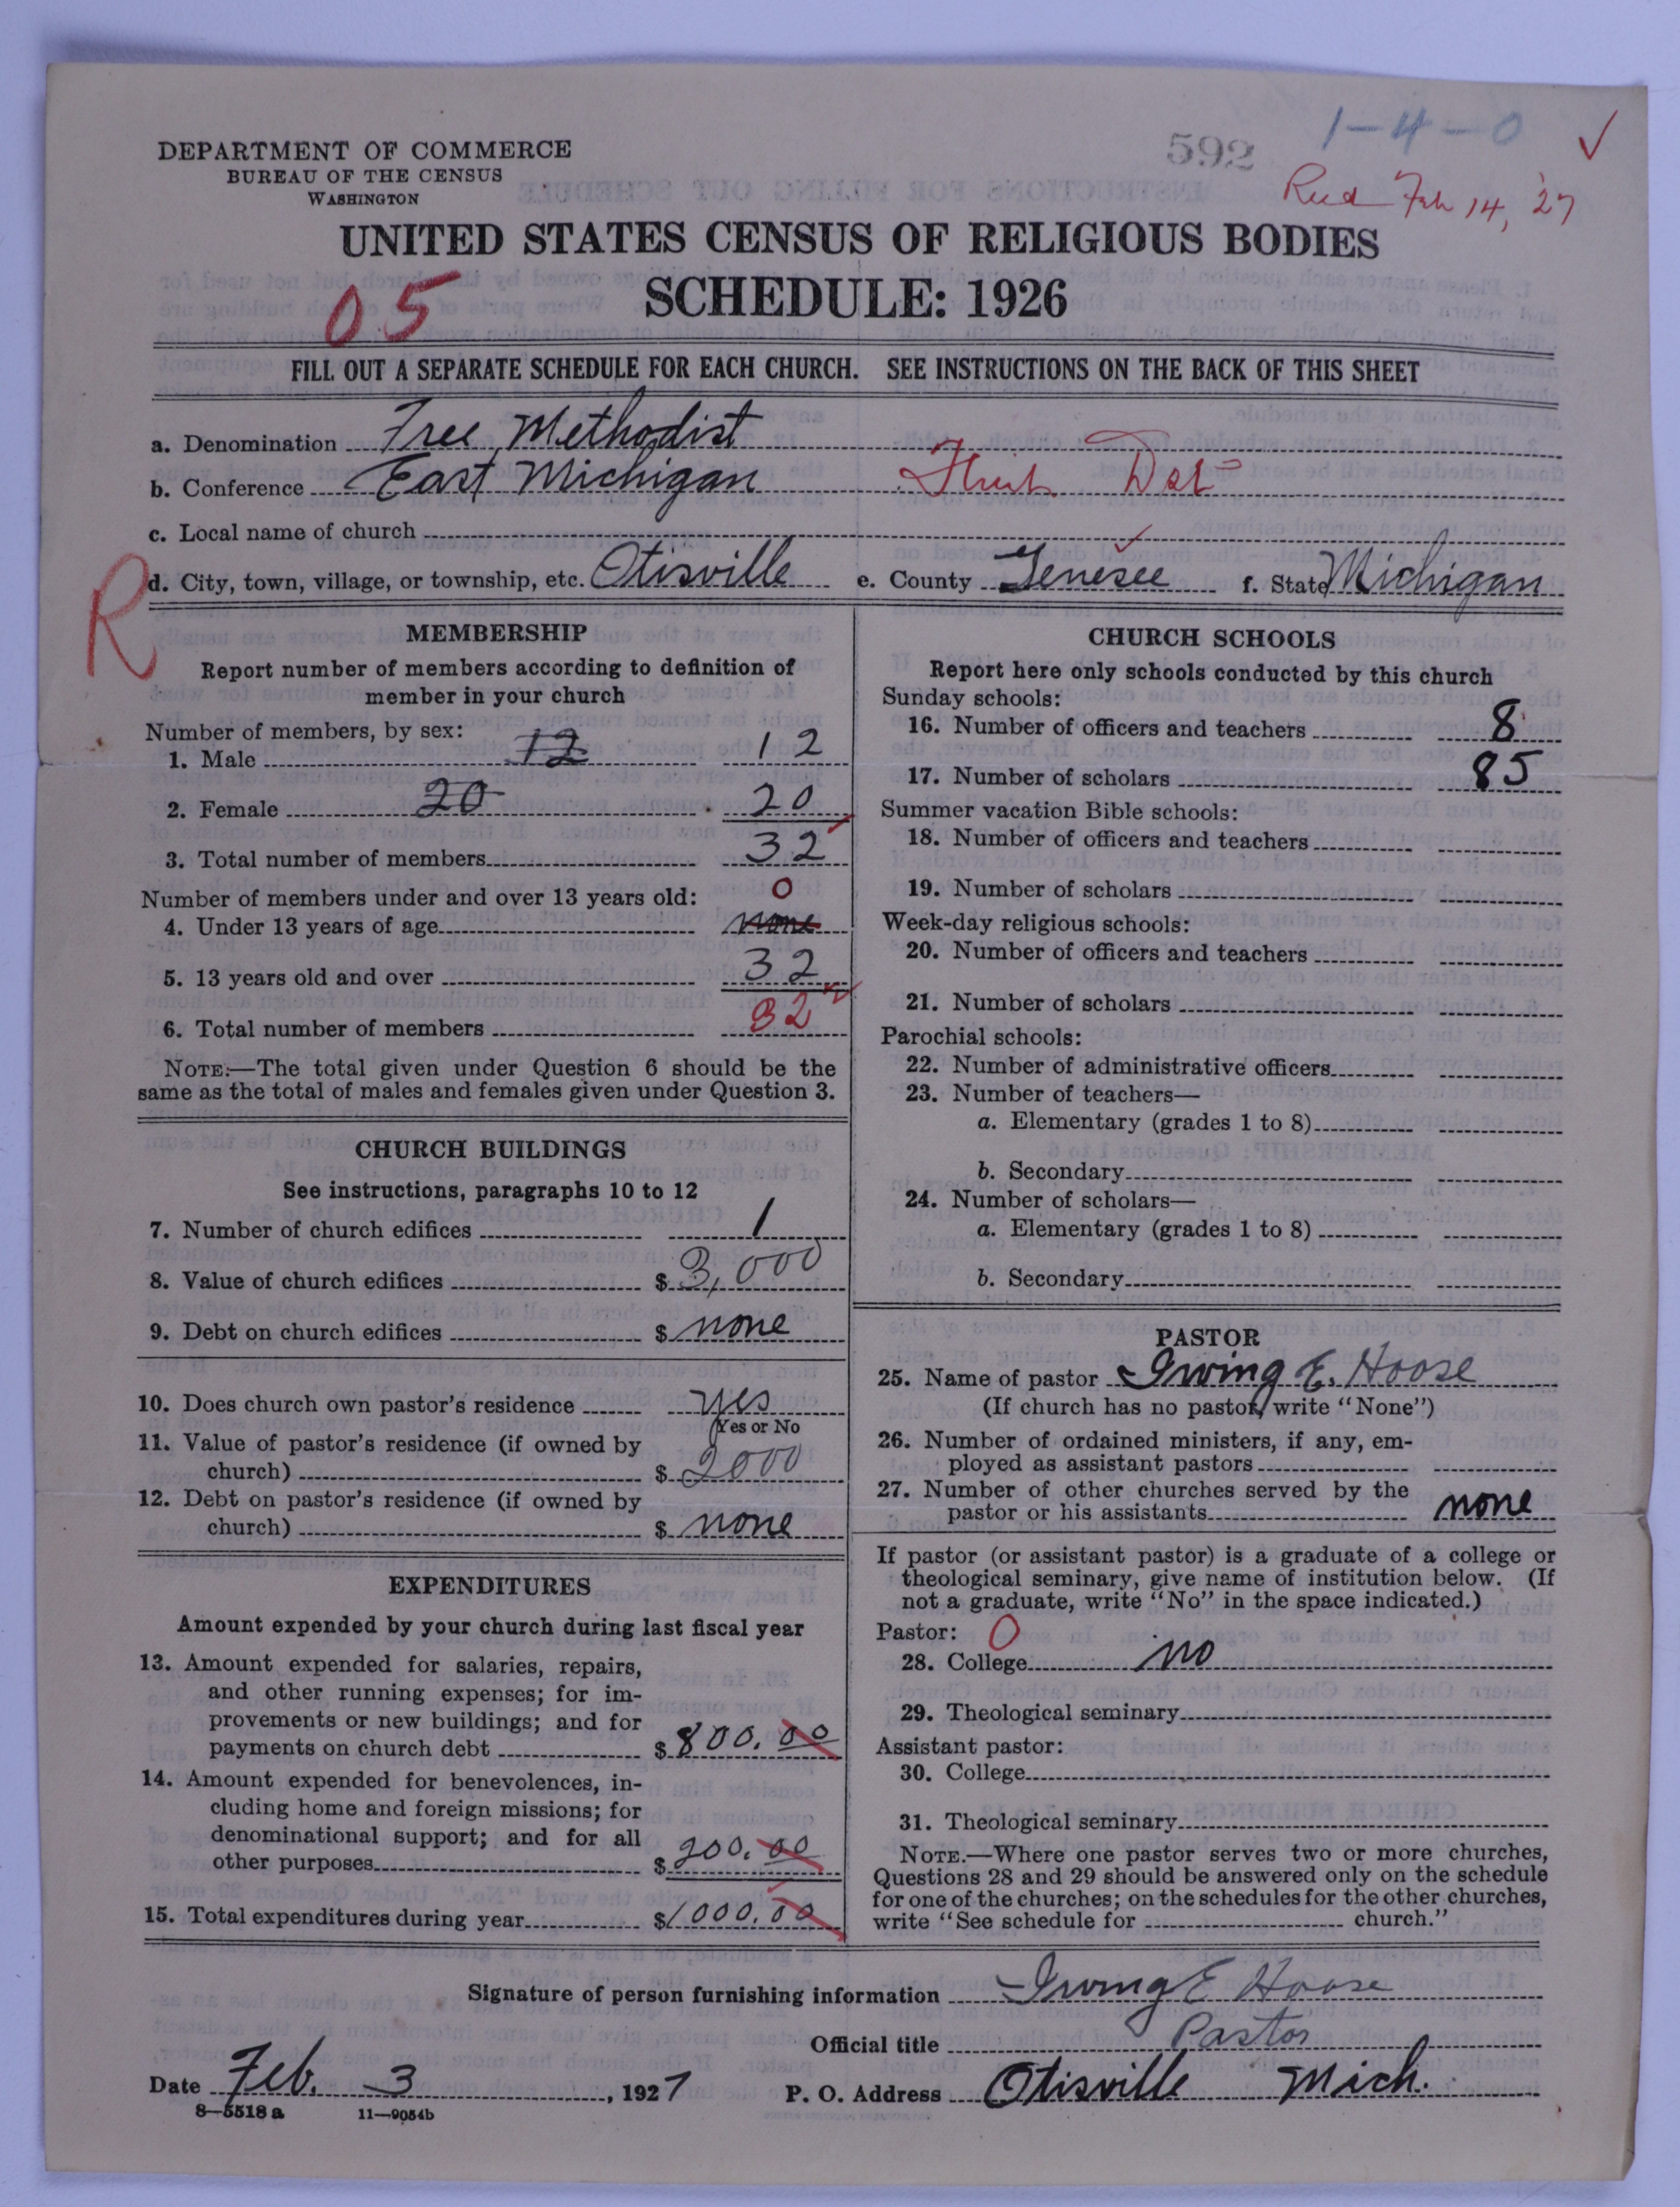 592
1-4-0
✓
DEPARTMENT OF COMMERCE
BUREAU OF THE CENSUS
WASHINGTON
Feb 14, '27
UNITED STATES CENSUS OF RELIGIOUS BODIES
05
SCHEDULE: 1926
FILL OUT A SEPARATE SCHEDULE FOR EACH CHURCH. SEE INSTRUCTIONS ON THE BACK OF THIS SHEET
a. Denomination Free Methodist
b. Conference East Michigan Flint Dst
c. Local name of church
R
d. City, town, village, or township, etc. Otisville e. County Genesee f. State Michigan
MEMBERSHIP
Report number of members according to definition of
member in your church
Number of members, by sex:
1. Male 12 12
2. Female 20 20
3. Total number of members 32
Number of members under and over 13 years old: 0
4. Under 13 years of age none
5. 13 years old and over 32
6. Total number of members 32
NOTE.—The total given under Question 6 should be the
same as the total of males and females given under Question 3.
CHURCH BUILDINGS
See instructions, paragraphs 10 to 12
7. Number of church edifices 1
8. Value of church edifices $ 3,000
9. Debt on church edifices $ none
10. Does church own pastor's residence yes
Yes or No
11. Value of pastor's residence (if owned by
church) $ 2000
12. Debt on pastor's residence (if owned by
church) $ none
EXPENDITURES
Amount expended by your church during last fiscal year
13. Amount expended for salaries, repairs,
and other running expenses; for im-
provements or new buildings; and for
payments on church debt $ 800.00
14. Amount expended for benevolences, in-
cluding home and foreign missions; for
denominational support; and for all
other purposes $ 200.00
15. Total expenditures during year $ 1000.00
CHURCH SCHOOLS
Report here only schools conducted by this church
Sunday schools:
16. Number of officers and teachers 8
17. Number of scholars 85
Summer vacation Bible schools:
18. Number of officers and teachers
19. Number of scholars
Week-day religious schools:
20. Number of officers and teachers
21. Number of scholars
Parochial schools:
22. Number of administrative officers
23. Number of teachers—
a. Elementary (grades 1 to 8)
b. Secondary
24. Number of scholars—
a. Elementary (grades 1 to 8)
b. Secondary
PASTOR
25. Name of pastor Irving E. Hoose
(If church has no pastor, write "None")
26. Number of ordained ministers, if any, em-
ployed as assistant pastors
27. Number of other churches served by the
pastor or his assistants none
If pastor (or assistant pastor) is a graduate of a college or
theological seminary, give name of institution below. (If
not a graduate, write "No" in the space indicated.)
Pastor: 0
28. College no
29. Theological seminary
Assistant pastor:
30. College
31. Theological seminary
NOTE.—Where one pastor serves two or more churches,
Questions 28 and 29 should be answered only on the schedule
for one of the churches; on the schedules for the other churches,
write "See schedule for church."
Signature of person furnishing information Irving E Hoose
Official title Pastor
Date Feb. 3, 1927 P. O. Address Otisville Mich.
8—5518 a 11—9054b